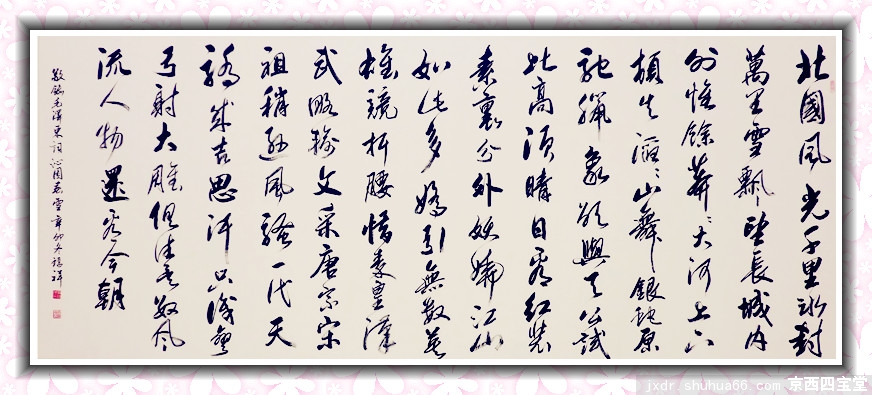 北國風光千里冰封
萬里雪飄望長城内
外惟餘莽〻大河上下
頓失滔〻山舞銀蛇原
馳臘象欲與天公試
比高須晴日看紅裝
素裹分外妖嬈江山
如此多嬌引無數英
雄競折腰惜秦皇漢
武略輸文采唐宗宋
祖稍遜風騷一代天
驕成吉思汗只識彎
弓射大雕俱往矣數風
流人物還看今朝
敬錄毛澤東詞沁園春雪辛卯冬祥
jxdr.shuhua66.com 京西四宝堂